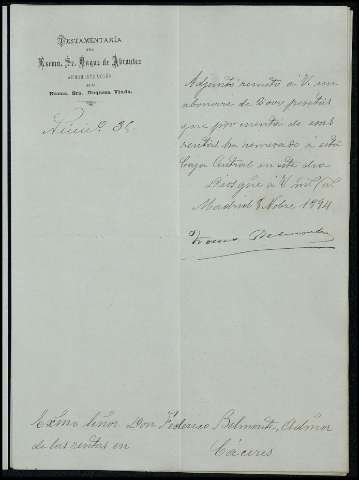 TESTAMENTARÍA
DEL
Excmo. Sr. Duque de Abrantes
ADMINISTRACIÓN
DE LA
Excma. Sra. Duquesa Viuda.
Núm. 36.
Adjunto remito á V. un
abonaré de 2000 pesetas
que por cuenta de sus
rentas ha remesado á esta
Caja Central en este dia
Dios gue á V. m.s a.s
Madrid 8 Nobre 1894
Excmo Señor Don Federico Belmonte, Admor
de las rentas en
Cáceres